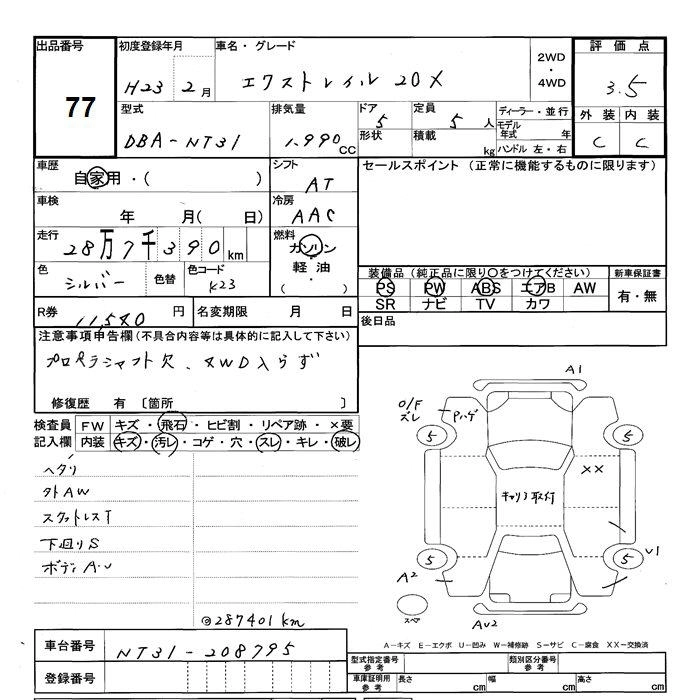 出品番号 初度登録年月 車名・グレード 評価点
77
H23 2月 エクストレイル 20X 2WD ・ 4WD 3.5
型式 排気量 ドア 定員 ディーラー・並行 外装 内装
DBA-NT31 1,990CC 5 5人 モデル年式 年 C C
形状 積載 kg ハンドル 左・右
車歴 シフト セールスポイント (正常に機能するものに限ります)
自家用・( ) AT
車検 冷房
年 月( 日) AAC
走行 燃料
28万7千390km ガソリン
・軽油・
( )
色 色替 色コード
シルバー K23
装備品 (純正品に限り○をつけてください) 新車保証書
PS PW ABS エアB AW 有・無
SR ナビ TV カワ
R券 円 名変期限 月 日 後日品
11,540
注意事項申告欄(不具合内容等は具体的に記入して下さい)
プロペラシャフト欠、4WD入らず
修復歴 有 〔箇所 〕
検査員記入欄 FW キズ・飛石・ヒビ割・リペア跡・×要
内装 キズ・汚レ・コゲ・穴・スレ・キレ・破レ
ヘタリ
外AW
スタットレスT
下廻りS
ボディA・U
@287401km
A1
O/Fズレ
Pハゲ
5 5
XX
キャリア取付
5 5
U1
A2
スペア
AU2
車台番号 NT31-208795
登録番号
A-キズ E-エクボ U-凹み W-補修跡 S-サビ C-腐食 XX-交換済
型式指定番号参考 類別区分番号参考
車庫証明用参考 長さ cm 幅 cm 高さ cm